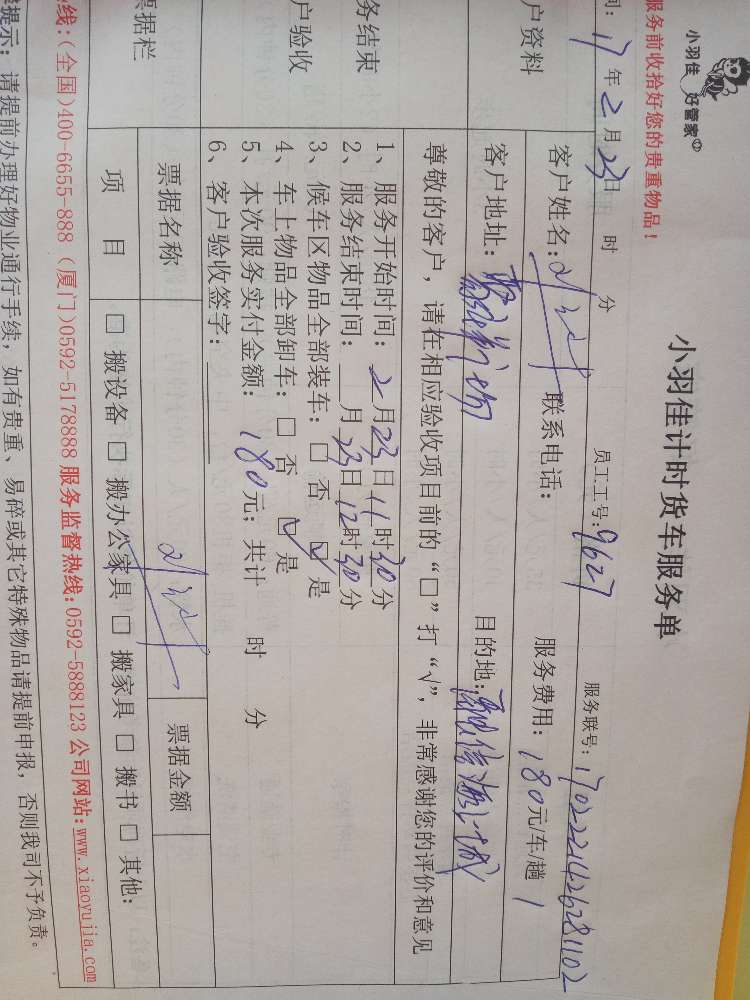 小羽佳 好管家
服务前收拾好您的贵重物品！
小羽佳计时货车服务单
17年2月23日 时 分 员工工号：9627 服务联号：1702221426281102
户资料 客户姓名： 联系电话： 服务费用：180元/车/趟 1
客户地址： 目的地：
尊敬的客户，请在相应验收项目前的“□”打“√”，非常感谢您的评价和意见
务结束
户验收
1、服务开始时间：2月23日11时30分
2、服务结束时间： 月23日12时30分
3、候车区物品全部装车：□否 ☑是
4、车上物品全部卸车：□否 ☑是
5、本次服务实付金额：180元；共计 时 分
6、客户验收签字：
票据栏 票据名称 票据金额
项 目 □搬设备 □搬办公家具 □搬家具 □搬书 □其他：
线：(全国)400-6655-888 (厦门)0592-5178888 服务监督热线：0592-5888123 公司网站：www.xiaoyujia.com
提示：请提前办理好物业通行手续，如有贵重、易碎或其它特殊物品请提前申报，否则我司不予负责。